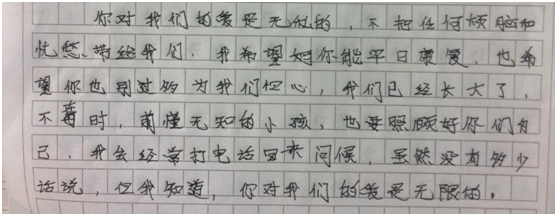 你对我们的爱是无私的，不把任何烦脑和
忧愁带给我们。我希望好你能平日里爱，也希
望你也别过多为我们但心，我们已经长大了，
不再时，萌懂无知的小孩，也要照顾好你们自
己。我会经常打电话回来问候，虽然没有多少
话说，但我知道，你对我们的爱是无限的。